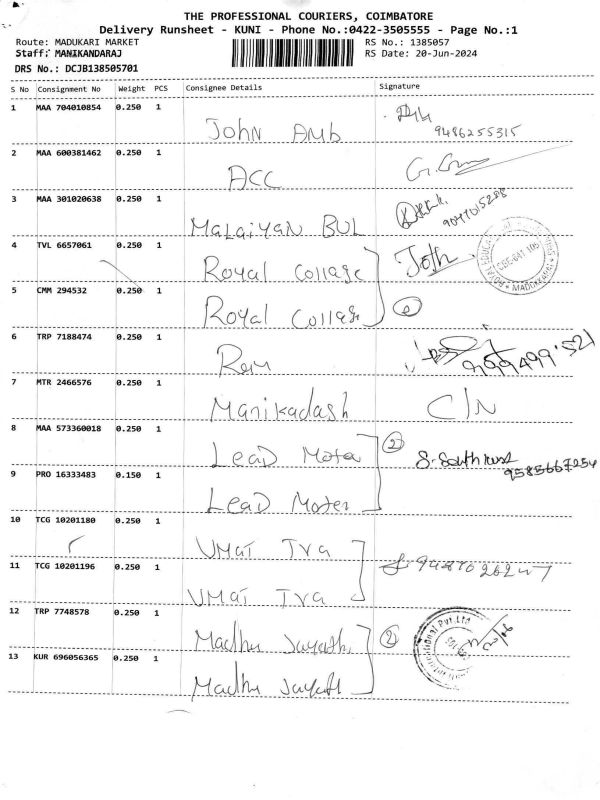 THE PROFESSIONAL COURIERS, COIMBATORE
Delivery Runsheet - KUNI - Phone No.:0422-3505555 - Page No.:1
Route: MADUKARI MARKET RS No.: 1385057
Staff: MANIKANDARAJ RS Date: 20-Jun-2024
DRS No.: DCJB138505701
S No Consignment No Weight PCS Consignee Details Signature
1 MAA 704010854 0.250 1
John Amb 9486255315
2 MAA 600381462 0.250 1
ACC
3 MAA 301020638 0.250 1
Malaiyan BUL
4 TVL 6657061 0.250 1
Royal Collage
5 CMM 294532 0.250 1
Royal Collage
6 TRP 7188474 0.250 1
Ram
7 MTR 2466576 0.250 1
Manikadash C/N
8 MAA 573360018 0.250 1
Lead Moter 2
9 PRO 16333483 0.150 1 9585667254
Lead Moter
10 TCG 10201180 0.250 1
UMai Tva
11 TCG 10201196 0.250 1
UMai Tva
12 TRP 7748578 0.250 1
Madhu Jayath 2
13 KUR 696056365 0.250 1
Madhu Jayath